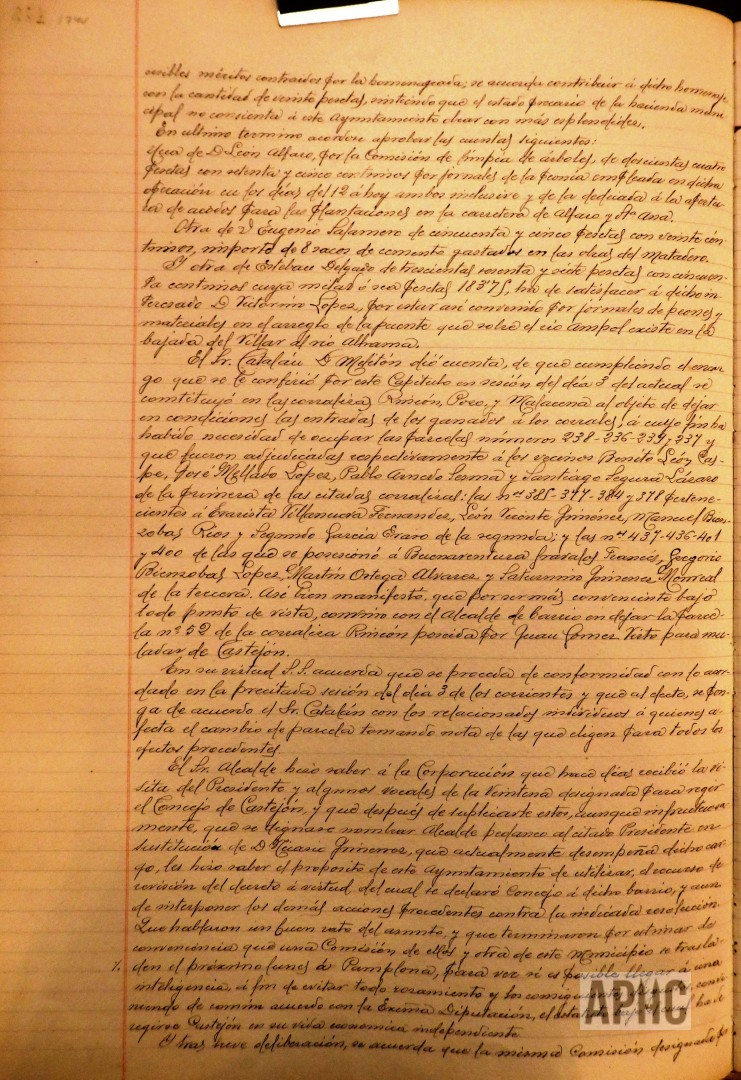 méritos contraidos por la homenajeada; se acuerda contribuir á dicho homenaje
con la cantidad de veinte pesetas, sintiendo que el estado precario de la hacienda muni-
cipal no consienta á este Ayuntamiento obrar con más esplendidez.
En ultimo termino acordose aprobar las cuentas siguientes:
de D. León Alfaro, por la Comisión de limpia de árboles, de doscientas cuatro
pesetas con setenta y cinco centimos por jornales de la peonía empleada en dicha
operación en los días del 12 á hoy ambos inclusive y de la dedicada á la apertu-
ra de para las plantaciones en la carretera de Alfaro y Stª Ana.
Otra de D. Eugenio Salamero de cincuenta y cinco pesetas con veinte cén-
timos, importe de 8 sacos de cemento gastados en las obras del Matadero.
Y otra de Esteban Delgado de trescientas sesenta y siete pesetas con cincuen-
ta centimos cuya mitad ó sea pesetas 183'75, ha de satisfacer á dicho in-
teresado D. Victorino Lopez, por estar así convenido por jornales de peones y
materiales en el arreglo de la puente que sobre el rio Ampol existe en la
bajada del Villar al río Alhama.
El Sr. Catalán D. Melitón dió cuenta, de que cumpliendo el encar-
go que se le confirió por este Capitulo en sesión del día 3 del actual se
constituyó en las corralizas Rincón, Pozo, y Malacena al objeto de dejar
en condiciones las entradas de los ganados á los corrales, á cuyo fin ha
habido necesidad de ocupar las parcelas números 238-236-239-237 y
que fueron adjudicadas respectivamente á los vecinos Benito León Cas-
pe, José Mellado Lopez, Pablo Arnedo Sesma y Santiago Segura Lázaro
de la primera de las citadas corralizas: las nos 385-377-384 y 378 pertene-
cientes á Evarista Villanueva Fernandez, León Vicente Jiménez, Manuel Bien-
zobas Rios y Segundo Garcia Eraso de la segunda; y las nos 437-436-401
y 400 de las que se posesionó á Buenaventura Gravalos Francés, Gregorio
Bienzobas Lopez, Martín Ortega Alvarez y Saturnino Jimenez Monreal
de la tercera. Asi bien manifestó, que por ser más conveniente bajo
todo punto de vista, convino con el Alcalde de barrio en dejar la parce-
la nº 52 de la corraliza Rincón poseida por Juan Gomez Visto para mu-
ladar de Castejón.
En su virtud S.S. acuerda que se proceda de conformidad con lo acor-
dado en la precitada sesión del día 3 de los corrientes, y que al efecto, se pon-
ga de acuerdo el Sr. Catalán con los relacionados individuos á quienes a-
fecta el cambio de parcela tomando nota de las que eligen para todos los
efectos procedentes.
El Sr. Alcalde hizo saber á la Corporación que hace días recibió la vi-
sita del Presidente y algunos vocales de la Veintena designada para regir
el Concejo de Castejón, y que después de suplicarle estos, aunque infructuosa-
mente, que se dignase nombrar Alcalde pedaneo al citado Presidente en
sustitución de D. Nicasio Jimenez, que actualmente desempeña dicho car-
go, les hizo saber el propósito de este Ayuntamiento de utilizar, el recurso de
revisión del decreto á virtud del cual se declaró Concejo á dicho barrio, y aun
de interponer las demás acciones procedentes contra la indicada resolución.
Que hablaron un buen rato del asunto, y que terminaron por estimar de
conveniencia que una Comisión de ellos y otra de este Municipio se trasla-
den el próximo lunes á Pamplona, para ver si es posible llegar á una
inteligencia, á fin de evitar todo rozamiento y los
niendo de común acuerdo con la Excma Diputación, el ha de
regirse Castejón en su vida economica independiente.
Y tras breve deliberación, se acuerda que la misma Comisión designada
APHC